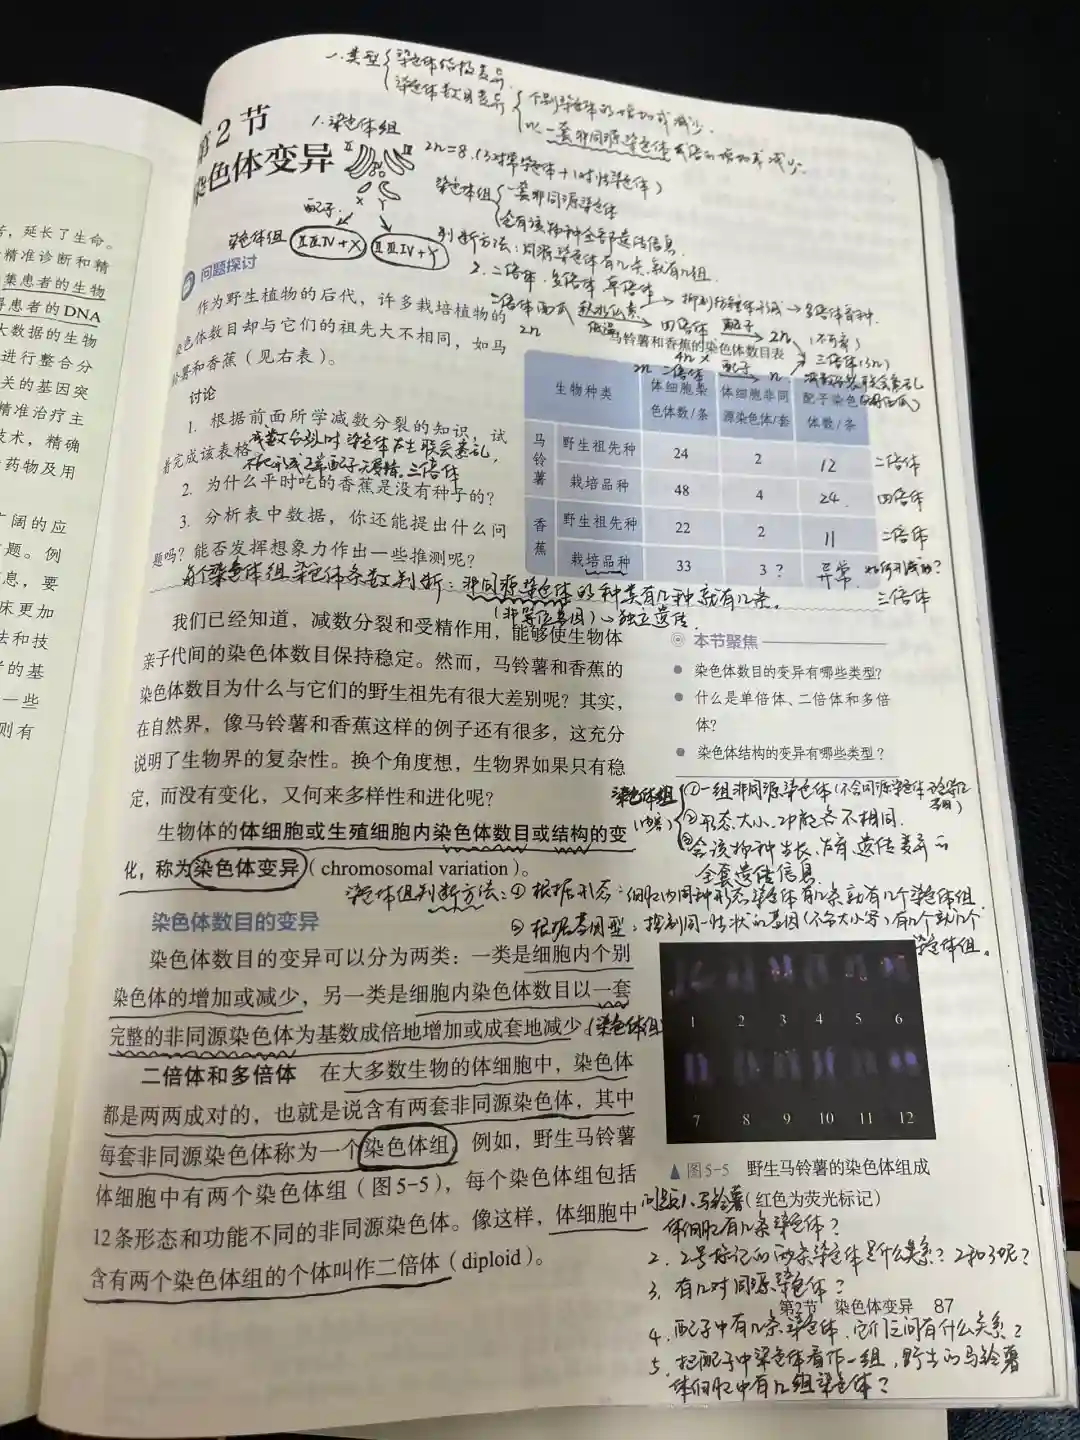 一.类型 染色体结构变异
染色体数目变异
个别染色体的增加或减少.
以一套非同源染色体成倍的增加或减少.
第2节
染色体变异
1.染色体组
2n=8.(3对常染色体+1对性染色体)
II III
X Y
染色体组 一套非同源染色体
含有该物种全部遗传信息.
配子.
染色体组 II III IV+X II III IV+Y
判断方法:同源染色体有几条,就有几组.
2.二倍体.多倍体.单倍体
问题探讨
二倍体西瓜 秋水仙素 低温 四倍体 配子 2n
2n 4n ×
抑制纺锤体形成→多倍体育种.
(不可育)
三倍体(3n)
2n 二倍体 配子 n
作为野生植物的后代，许多栽培植物的
染色体数目却与它们的祖先大不相同，如马
铃薯和香蕉（见右表）。
讨论
1. 根据前面所学减数分裂的知识，试
着完成该表格。
减数分裂时染色体发生联会紊乱,
三倍体
2. 为什么平时吃的香蕉是没有种子的？
3. 分析表中数据，你还能提出什么问
题吗？能否发挥想象力作出一些推测呢？
马铃薯和香蕉的染色体数目表
生物种类 体细胞染色体数/条 体细胞非同源染色体/套 配子染色体数/条
马铃薯 野生祖先种 24 2 12 二倍体
栽培品种 48 4 24 四倍体
香蕉 野生祖先种 22 2 11 二倍体
栽培品种 33 3? 异常 如何形成的?
三倍体
每个染色体组染色体条数判断:非同源染色体的种类有几种就有几条.
(非等位基因)→独立遗传.
我们已经知道，减数分裂和受精作用，能够使生物体
亲子代间的染色体数目保持稳定。然而，马铃薯和香蕉的
染色体数目为什么与它们的野生祖先有很大差别呢？其实，
在自然界，像马铃薯和香蕉这样的例子还有很多，这充分
说明了生物界的复杂性。换个角度想，生物界如果只有稳
定，而没有变化，又何来多样性和进化呢？
本节聚焦
染色体数目的变异有哪些类型？
什么是单倍体、二倍体和多倍
体？
染色体结构的变异有哪些类型？
生物体的体细胞或生殖细胞内染色体数目或结构的变
化，称为染色体变异（chromosomal variation）。
染色体组
①一组非同源染色体(不含同源染色体
②形态、大小、功能各不相同.
③含该物种生长、发育、遗传变异的
全套遗传信息.
染色体组判断方法:①根据形态:细胞内同种形态染色体有几条就有几个染色体组.
②根据基因型:控制同一性状的基因(不分大小写)有几个就几个
染色体组.
染色体数目的变异
染色体数目的变异可以分为两类：一类是细胞内个别
染色体的增加或减少，另一类是细胞内染色体数目以一套
完整的非同源染色体为基数成倍地增加或成套地减少。(染色体组)
二倍体和多倍体 在大多数生物的体细胞中，染色体
都是两两成对的，也就是说含有两套非同源染色体，其中
每套非同源染色体称为一个染色体组。例如，野生马铃薯
体细胞中有两个染色体组（图5-5），每个染色体组包括
12条形态和功能不同的非同源染色体。像这样，体细胞中
含有两个染色体组的个体叫作二倍体（diploid）。
1 2 3 4 5 6
7 8 9 10 11 12
▲图5-5 野生马铃薯的染色体组成
（红色为荧光标记）
问题1.马铃薯
体细胞有几条染色体?
2.2号标记的两条染色体是什么关系?2和3呢?
3.有几对同源染色体?
第2节 染色体变异 87
4.配子中有几条染色体.它们之间有什么关系?
5.把配子中染色体看作一组,野生的马铃薯
体细胞中有几组染色体?
，延长了生命。
精准诊断和精
集患者的生物
得患者的DNA
大数据的生物
进行整合分
关的基因突
精准治疗主
技术，精确
药物及用
广阔的应
题。例
息，要
床更加
法和技
的基
一些
则有